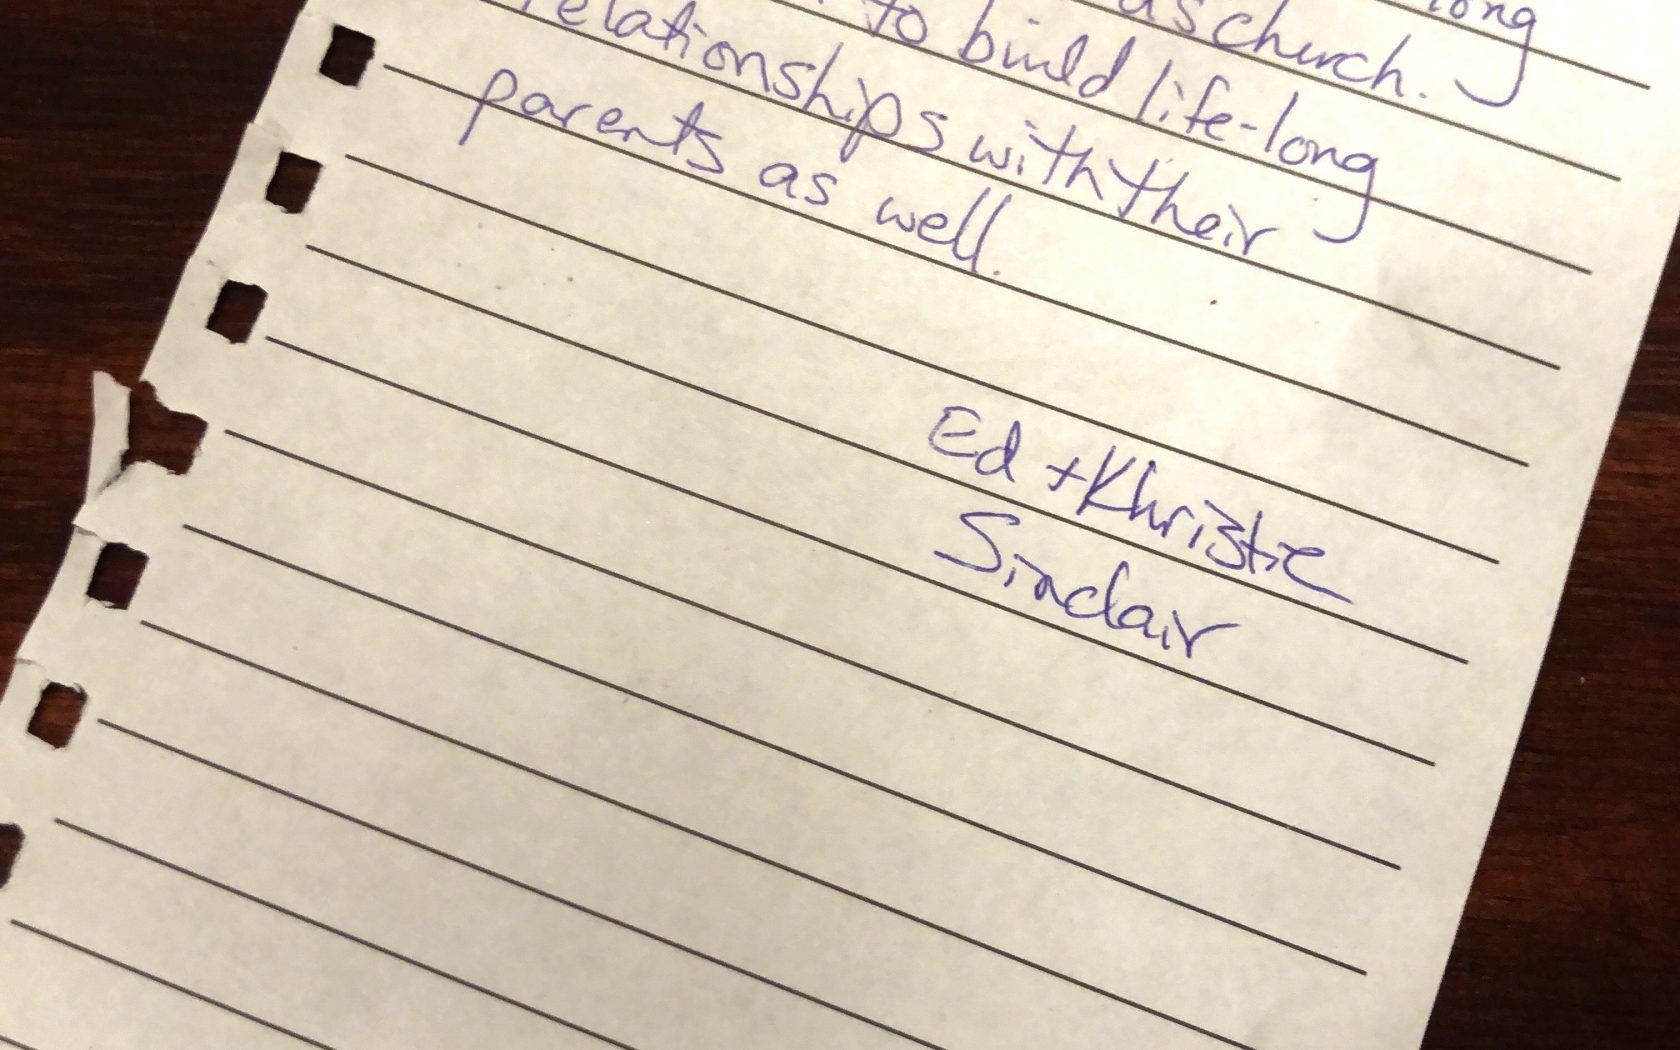 long
as church.
to build life-long
relationships with their
parents as well.
Ed + Khristie
Sinclair